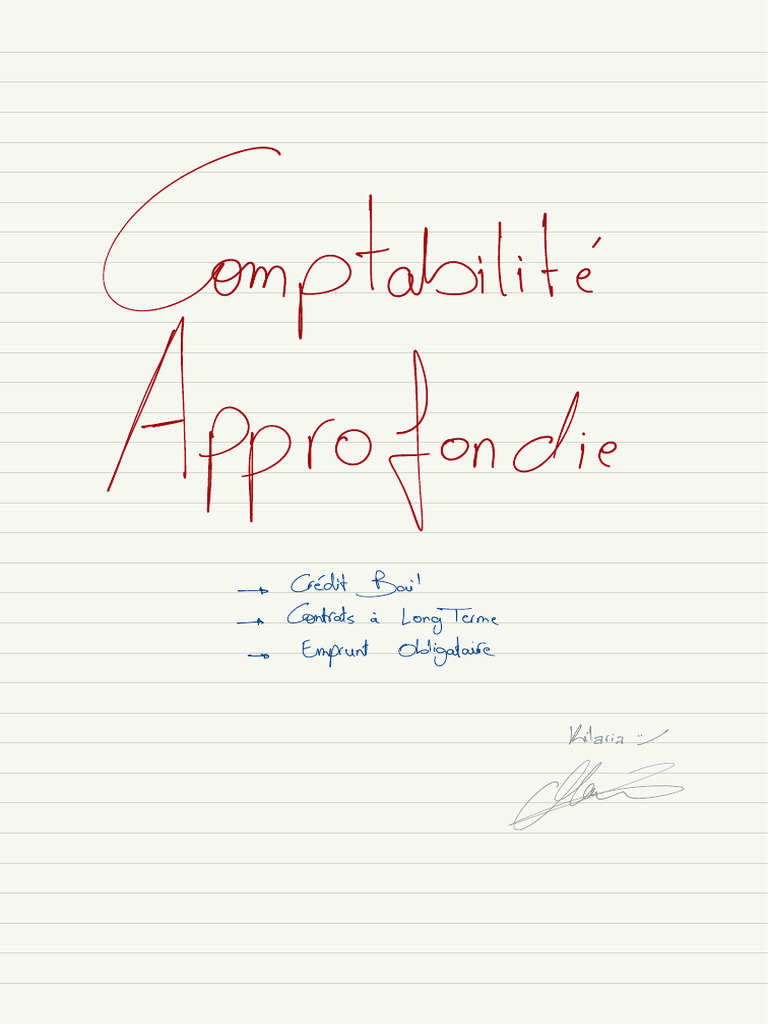 Comptabilité
Approfondie
→ Crédit Bail
→ Contrats à Long Terme
→ Emprunt Obligataire
Kilaria :)